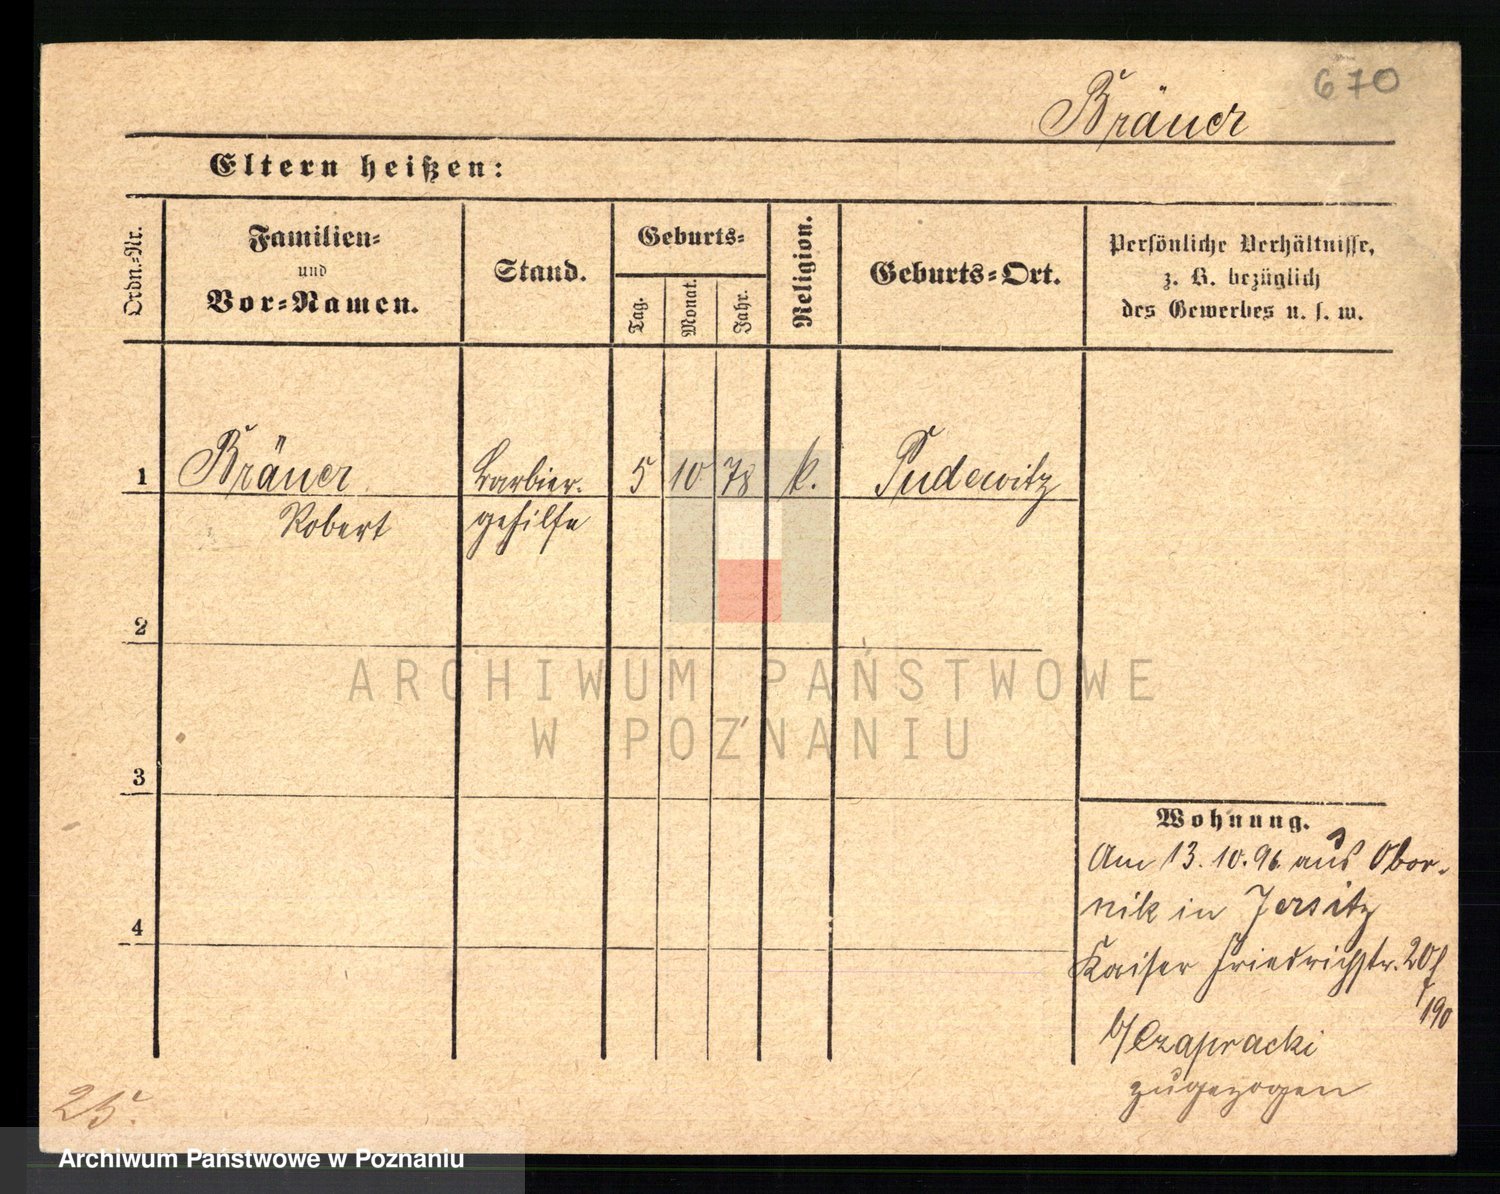 670
Bräuer
Eltern heißen:
Ordn.-Nr.
Familien-
und
Vor-Namen.
Stand.
Geburts-
Tag.
Monat.
Jahr.
Religion.
Geburts-Ort.
Persönliche Verhältnisse,
z. B. bezüglich
des Gewerbes u. s. w.
1 Bräuer Barbier- 5 10 78 k. Pudewitz
Robert gehilfe
2
3
4
Wohnung.
Am 13.10.96 aus Obor-
nik in Jersitz
Kaiser Friedrichstr. 20
190
b/Czapracki
zugezogen
ARCHIWUM PAŃSTWOWE
W POZNANIU
Archiwum Państwowe w Poznaniu